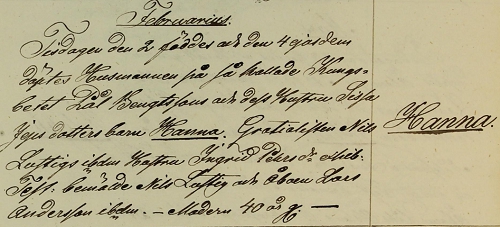 Februarius.
Tisdagen den 2 föddes och den 4 ejusdem
döptes Husmannen på så kallade Kungs-
betet Pål Bengtssons och dess Hustru Sissa
Jöns dotters barn Hanna. Gratialisten Nils
Hanna.
Luftigs ibdm Hustru Ingrid Pehrs Dr Mib.
Test. bemälde Nils Luftig och Åboen Lars
Andersson ibdm. – Modern 40 år g. —